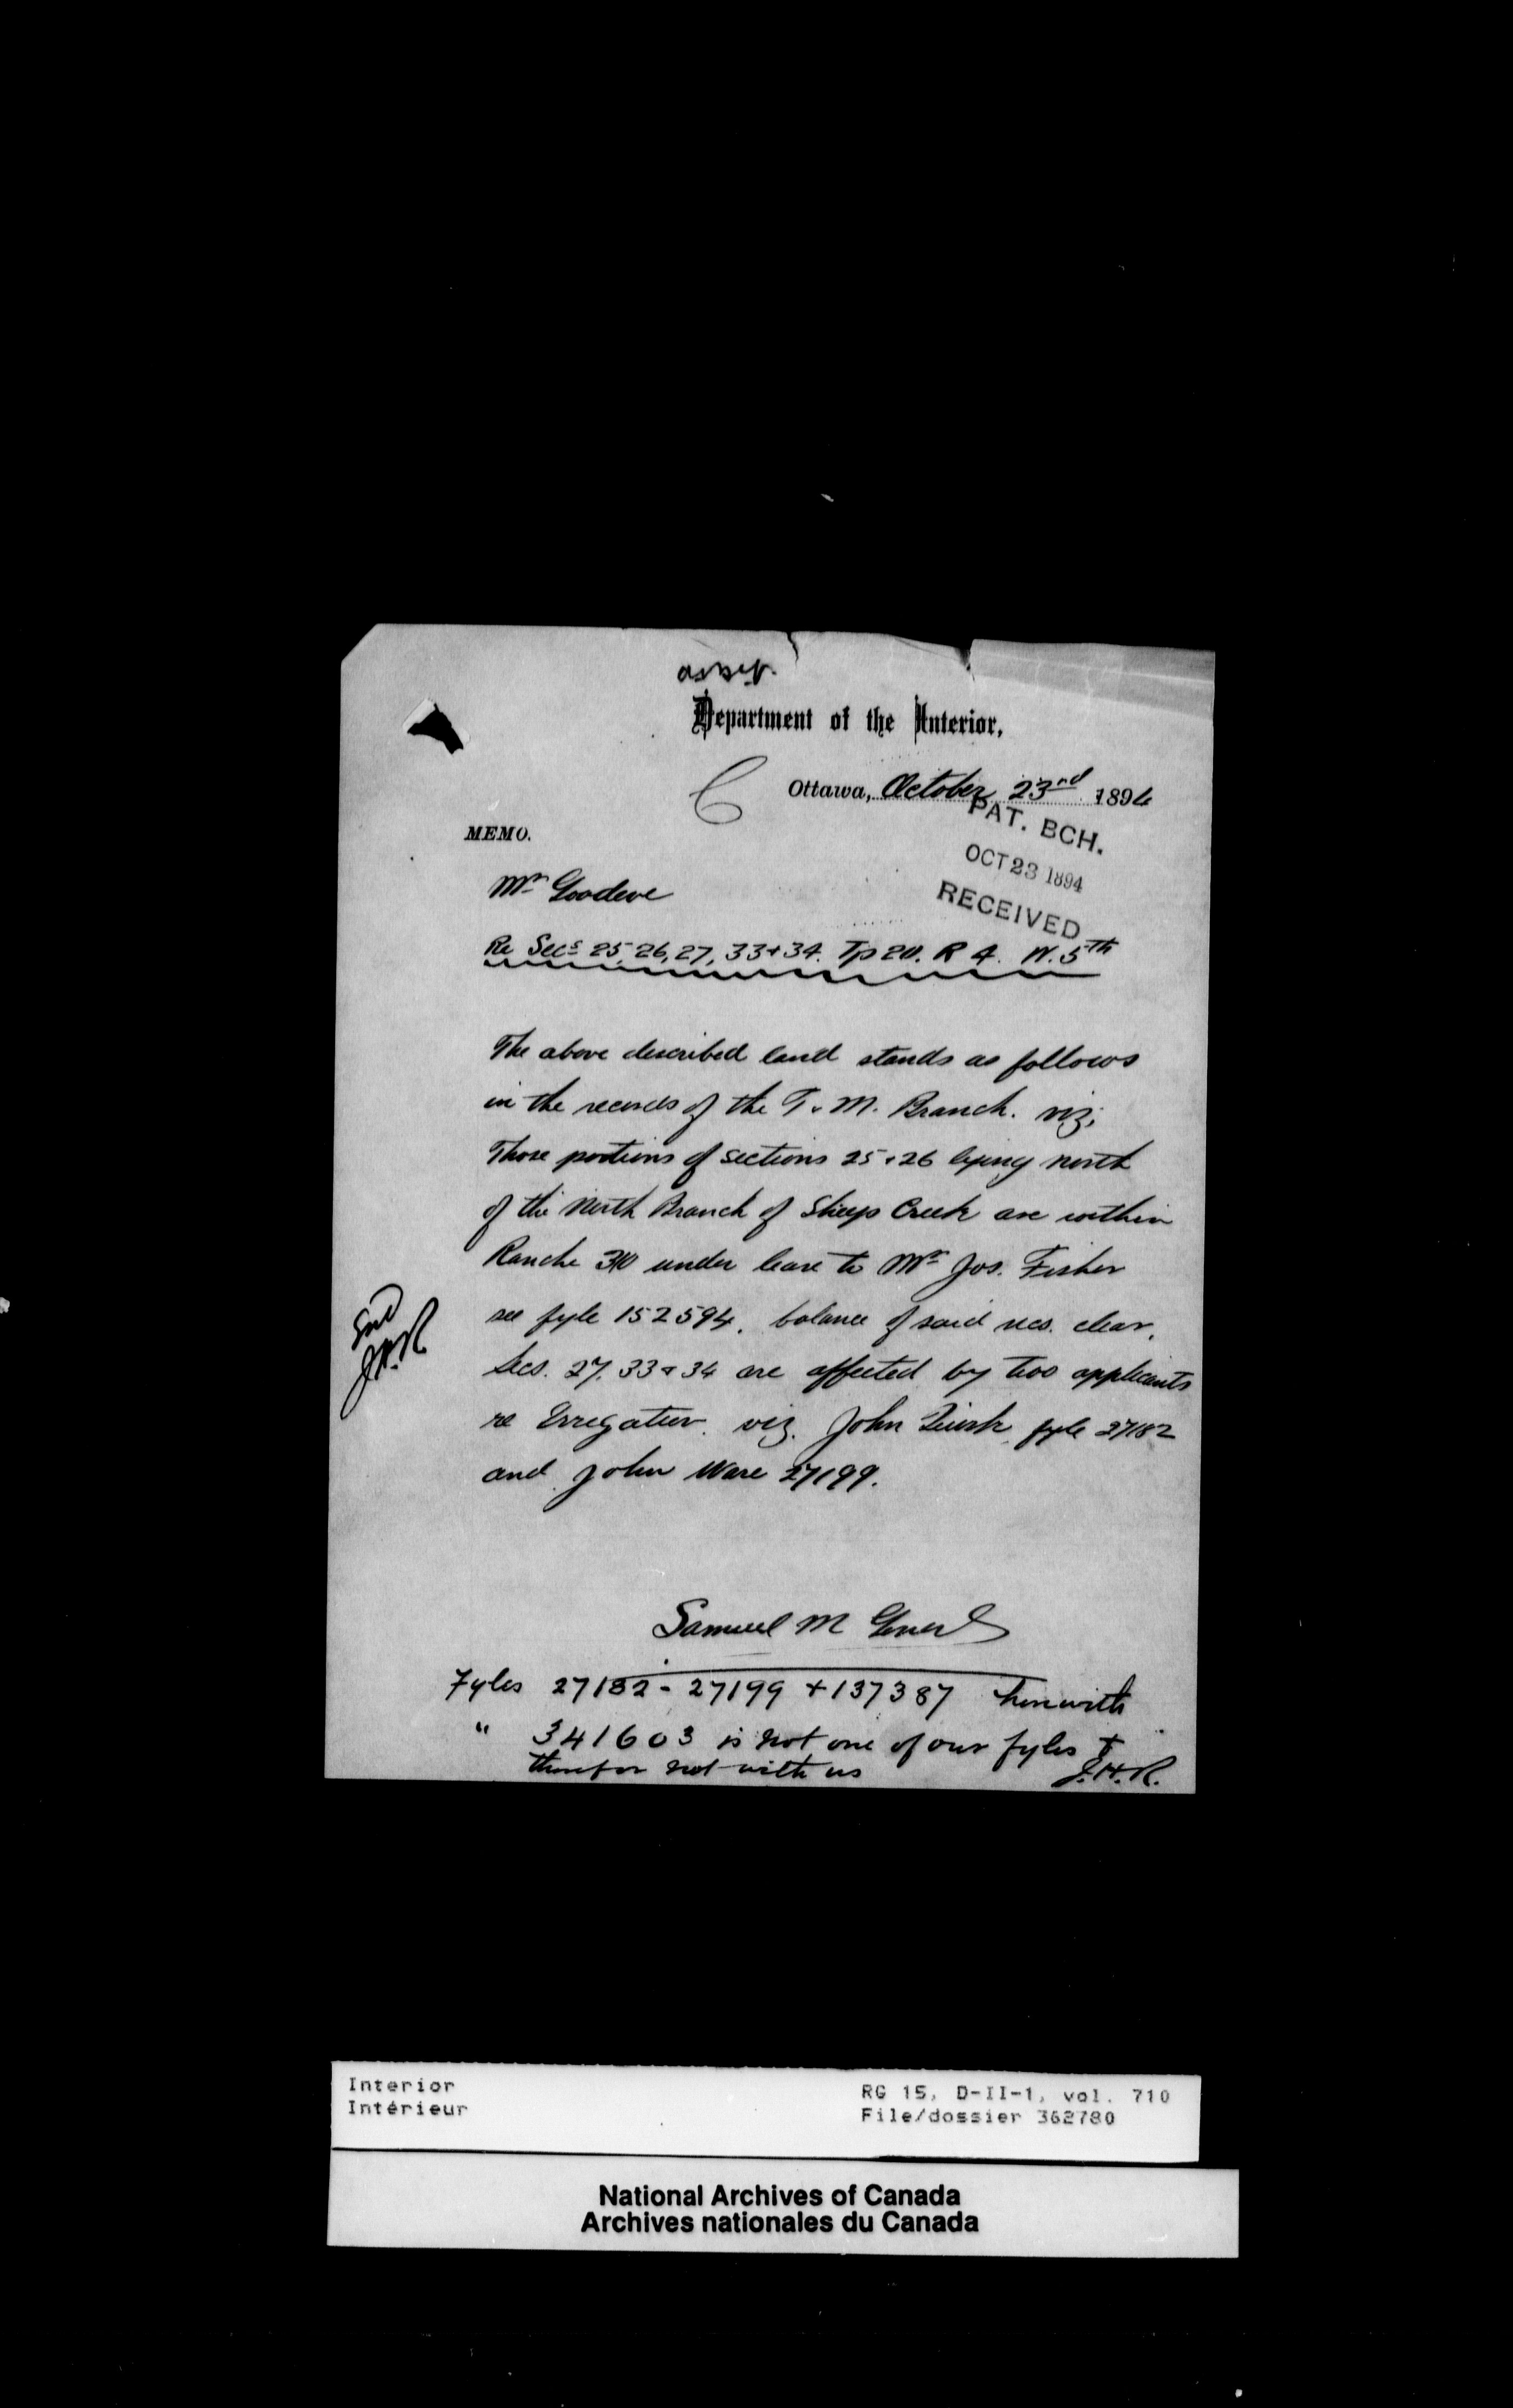 Department of the Interior,
C
Ottawa, October 23rd 1894
PAT. BCH.
OCT 23 1894
RECEIVED
MEMO.
Mr Goodeve
Re Secs 25, 26, 27, 33 + 34. Tp 20. R 4. W. 5th
The above described land stands as follows
in the records of the T. & M. Branch. viz;
Those portions of sections 25 & 26 lying north
of the North Branch of Sheep Creek are within
Ranche 310 under lease to Mr Jos. Fisher
see fyle 152594. balance of said secs. clear.
Secs. 27. 33 & 34 are affected by two applicants
re Irregation. viz. John Quirk fyle 27182
and John Ware 27199.
Samuel M
Fyles 27182 - 27199 + 137387 herewith
" 341603 is not one of our fyles &
therefor not with us
J.H.R.
Interior
Intérieur
RG 15, D-II-1, vol. 710
File/dossier 362780
National Archives of Canada
Archives nationales du Canada